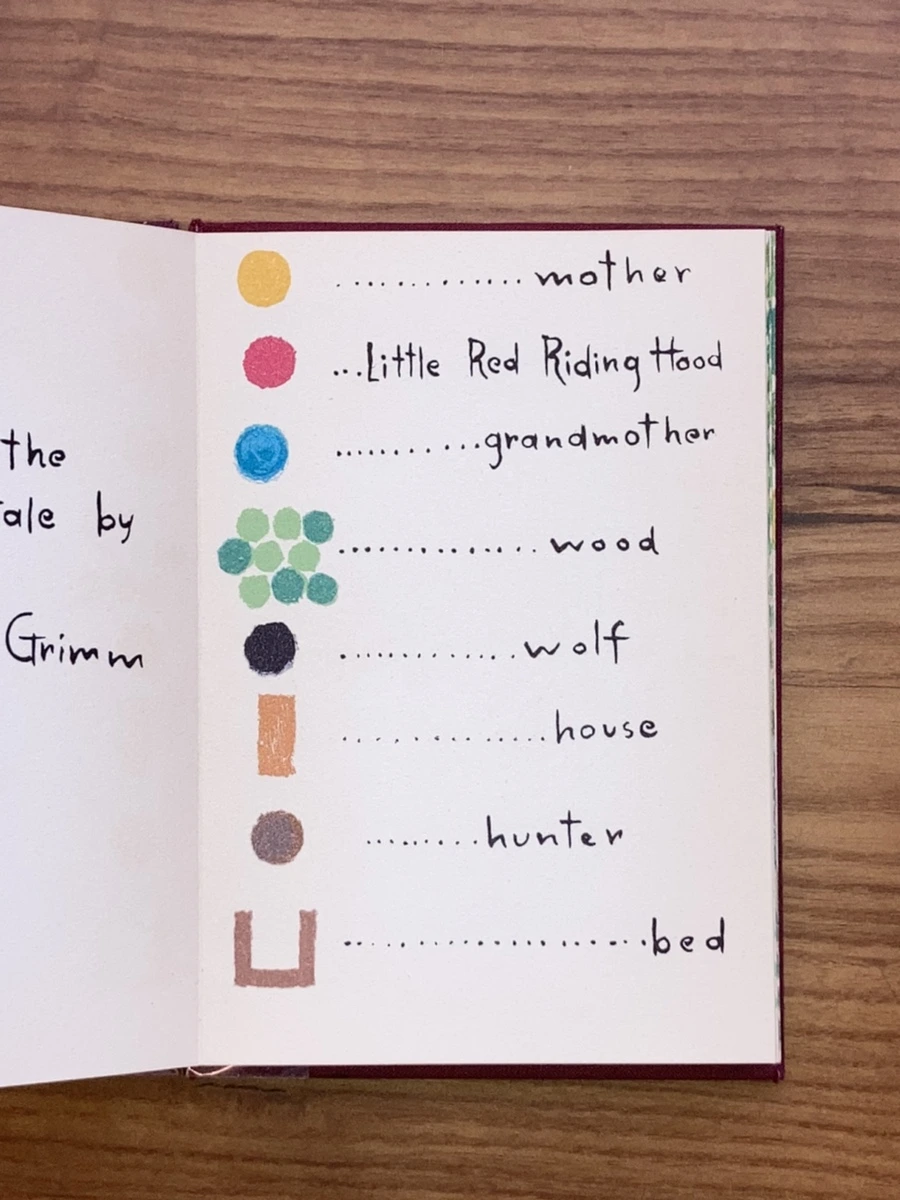 the
ale by
Grimm
............. mother
...Little Red Riding Hood
...........grandmother
.............. wood
............wolf
............house
.........hunter
..................bed